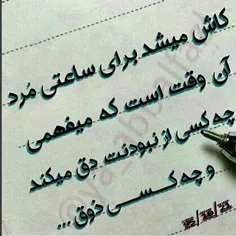 کاش میشد برای ساعتی مُرد
آن وقت است که میفهمی
چه کسی از نبودنت دِق میکند
و چه کسی ذوق ...